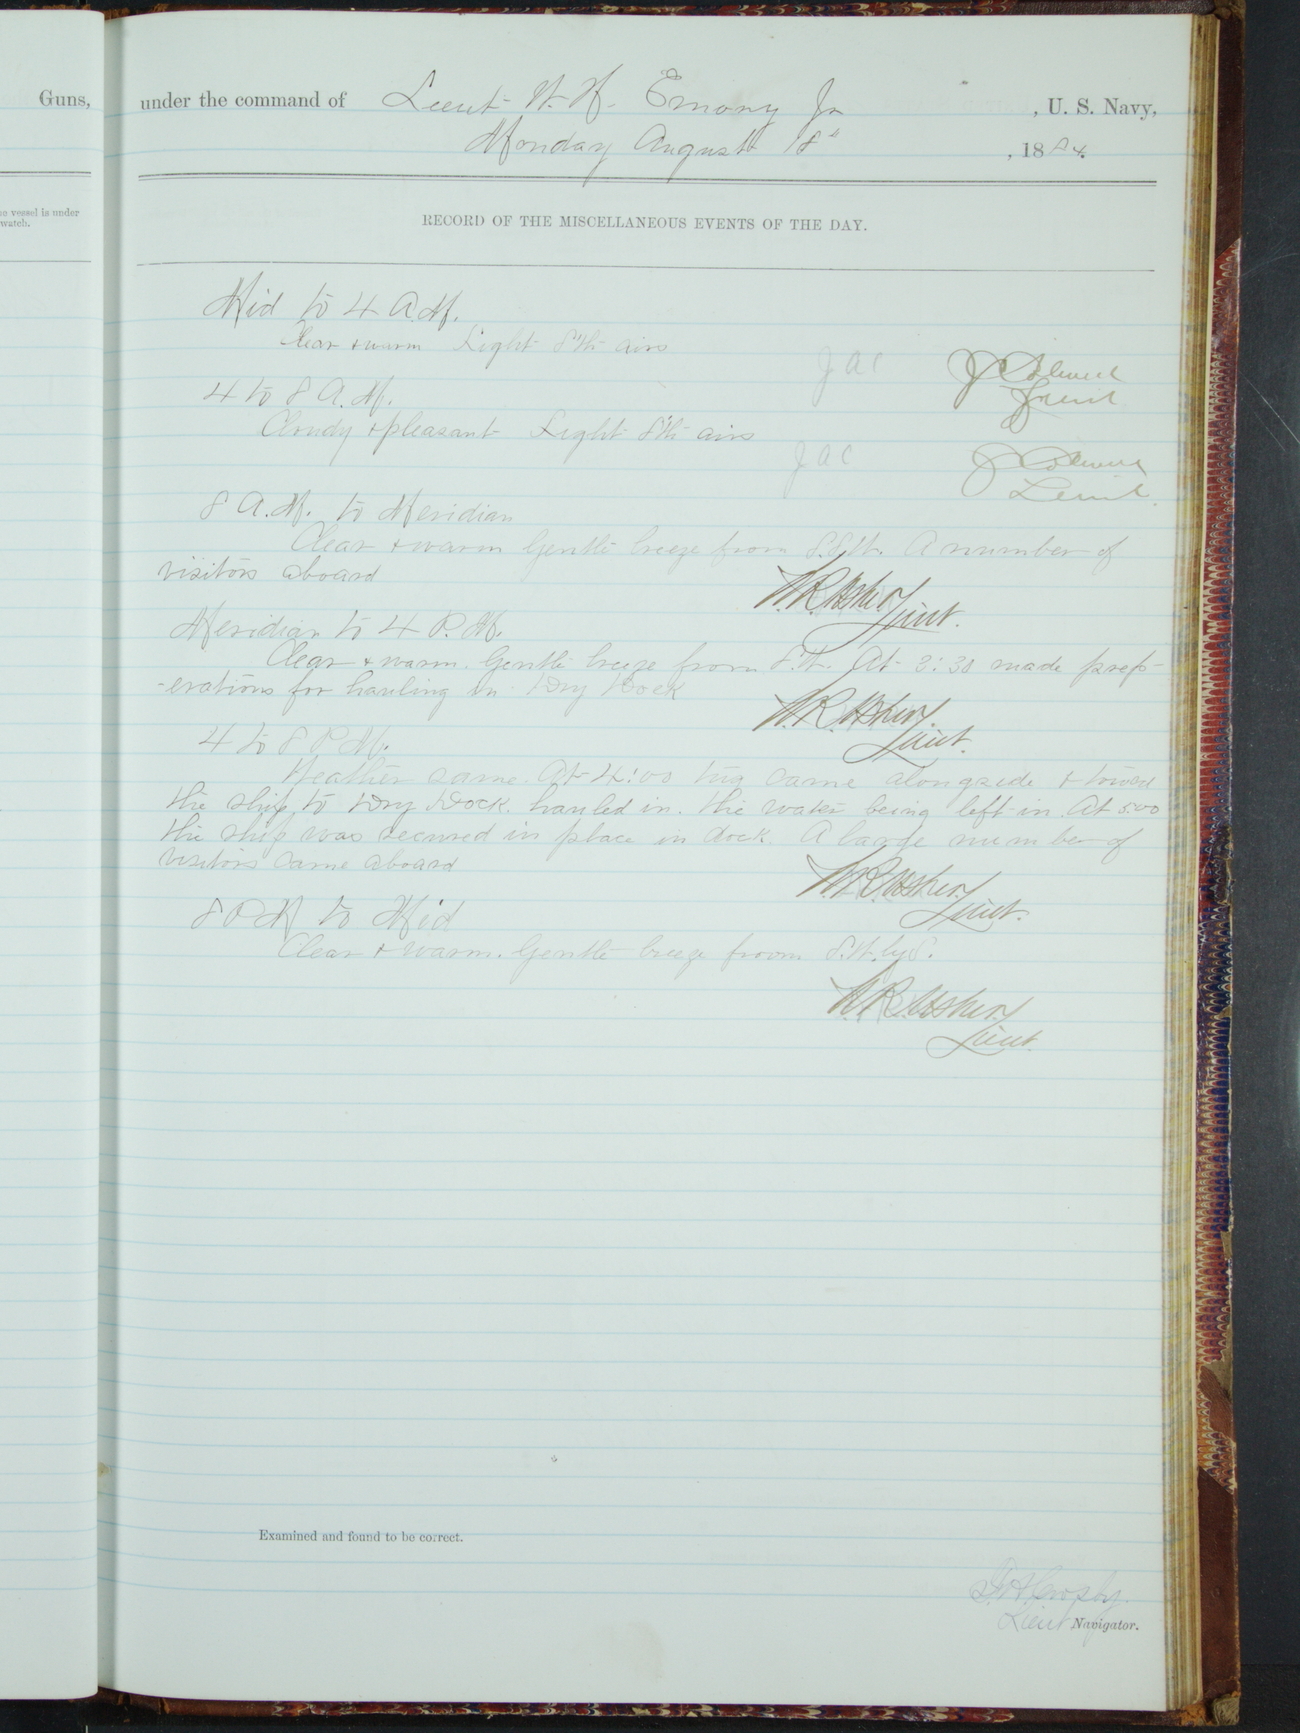 Guns, under the command of Lieut. W. H. Emory Jr , U. S. Navy,
Monday August 18" , 1884
he vessel is under
watch.
RECORD OF THE MISCELLANEOUS EVENTS OF THE DAY.
Mid to 4 A.M.
Clear & warm Light S'th airs
J A C
J C Colwell
Lieut
4 to 8 A.M.
Cloudy & pleasant Light S'th airs
J A C
J C Colwell
Lieut.
8 A.M. to Meridian
Clear & warm Gentle breeze from S.S.W. A number of
visitors aboard
N.R. Usher
Lieut.
Meridian to 4 P.M.
Clear & warm. Gentle breeze from S.W. At 3:30 made prep-
-erations for hauling in Dry Dock
N.R. Usher
Lieut.
4 to 8 P.M.
Weather same. At 4:00 tug came alongside & towed
the ship to Dry Dock, hauled in. the water being left in. At 5:00
the ship was secured in place in dock. A large number of
visitors came aboard
N.R. Usher
Lieut.
8 P.M. to Mid
Clear & warm. Gentle breeze from S.W. by S.
N.R. Usher
Lieut.
Examined and found to be correct.
Crosby
Lieut Navigator.